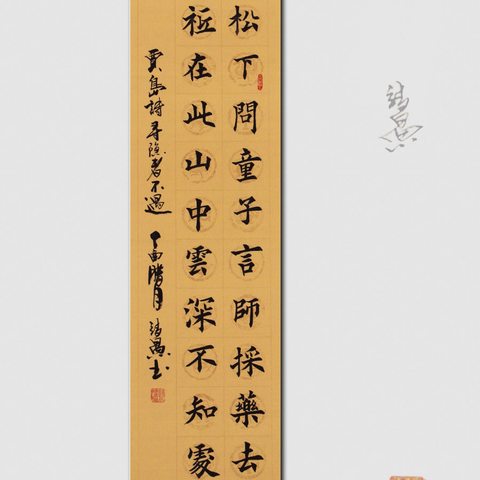 松下問童子言師採藥去
祗在此山中雲深不知處
賈島詩尋隱者不遇 丁酉臘月